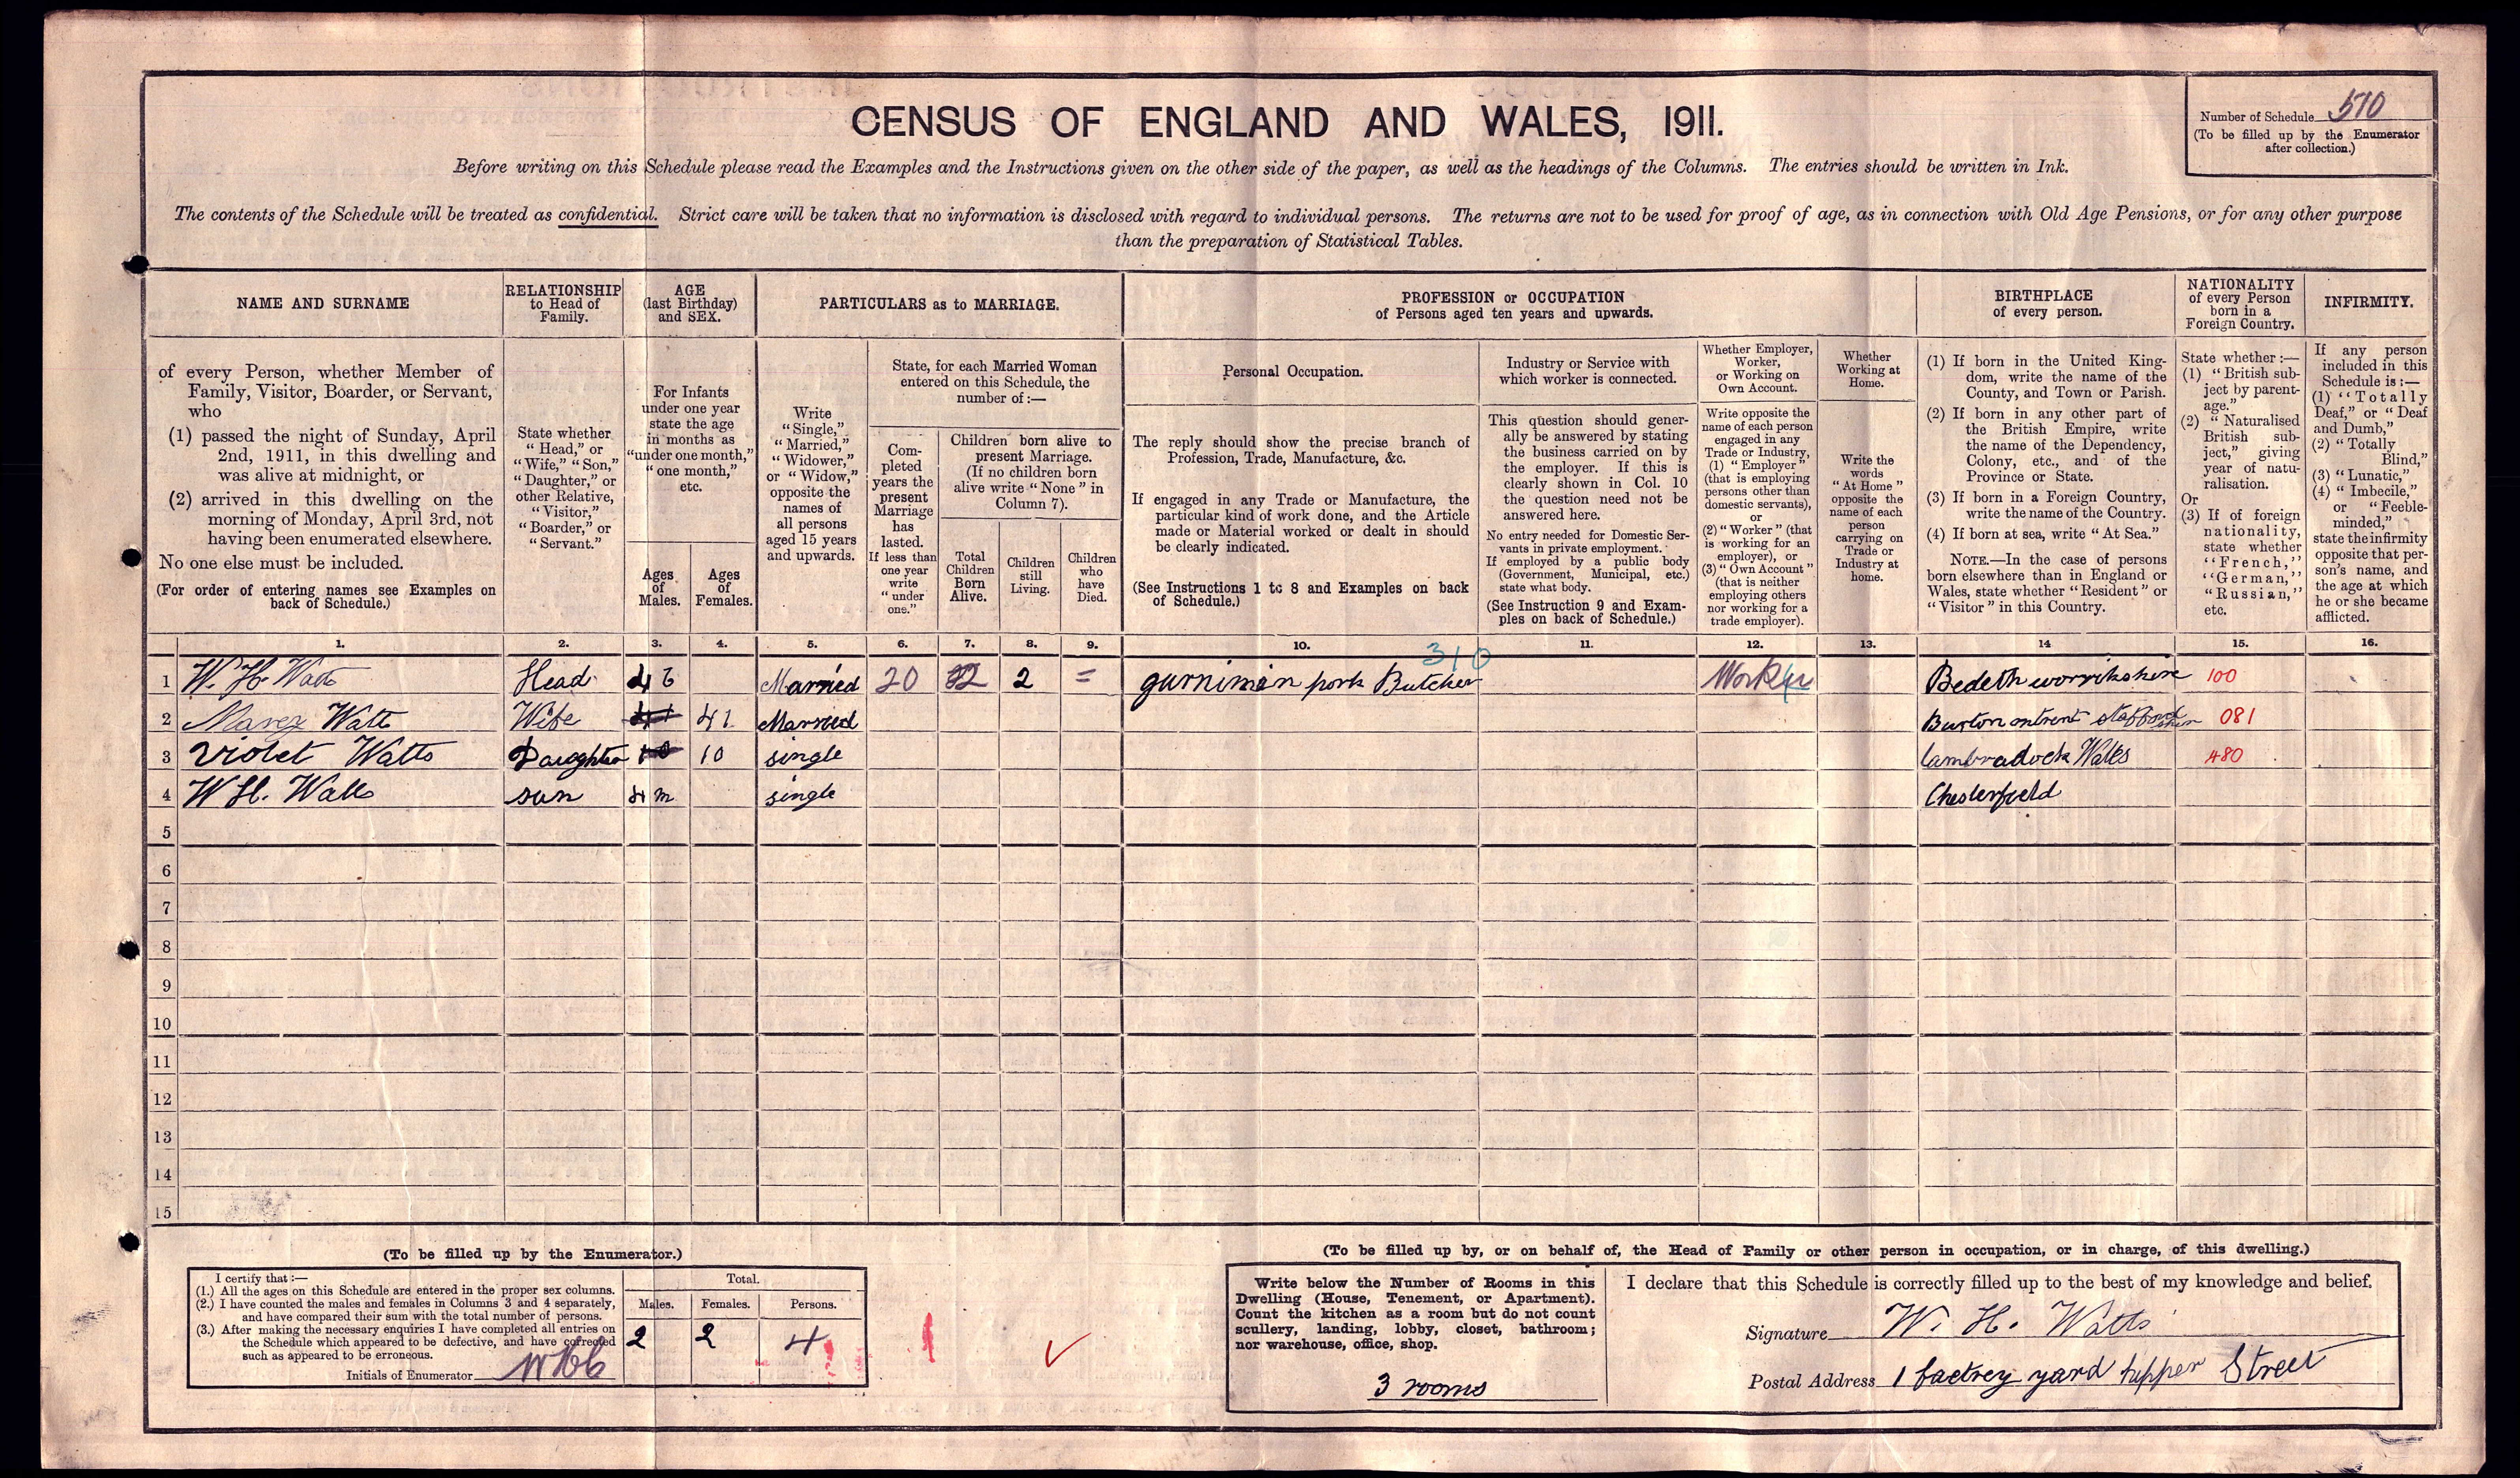 CENSUS OF ENGLAND AND WALES, 1911.
Number of Schedule 510
(To be filled up by the Enumerator
after collection.)
Before writing on this Schedule please read the Examples and the Instructions given on the other side of the paper, as well as the headings of the Columns. The entries should be written in Ink.
The contents of the Schedule will be treated as confidential. Strict care will be taken that no information is disclosed with regard to individual persons. The returns are not to be used for proof of age, as in connection with Old Age Pensions, or for any other purpose
than the preparation of Statistical Tables.
NAME AND SURNAME
of every Person, whether Member of
Family, Visitor, Boarder, or Servant,
who
(1) passed the night of Sunday, April
2nd, 1911, in this dwelling and
was alive at midnight, or
(2) arrived in this dwelling on the
morning of Monday, April 3rd, not
having been enumerated elsewhere.
No one else must be included.
(For order of entering names see Examples on
back of Schedule.)
RELATIONSHIP
to Head of
Family.
State whether
"Head," or
"Wife," "Son,"
"Daughter," or
other Relative,
"Visitor,"
"Boarder," or
"Servant."
AGE
(last Birthday)
and SEX.
For Infants
under one year
state the age
in months as
"under one month,"
"one month,"
etc.
Ages
of
Males.
Ages
of
Females.
PARTICULARS as to MARRIAGE.
Write
"Single,"
"Married,"
"Widower,"
or "Widow,"
opposite the
names of
all persons
aged 15 years
and upwards.
State, for each Married Woman
entered on this Schedule, the
number of :—
Com-
pleted
years the
present
Marriage
has
lasted.
If less than
one year
write
"under
one."
Children born alive to
present Marriage.
(If no children born
alive write "None" in
Column 7).
Total
Children
Born
Alive.
Children
still
Living.
Children
who
have
Died.
PROFESSION or OCCUPATION
of Persons aged ten years and upwards.
Personal Occupation.
The reply should show the precise branch of
Profession, Trade, Manufacture, &c.
If engaged in any Trade or Manufacture, the
particular kind of work done, and the Article
made or Material worked or dealt in should
be clearly indicated.
(See Instructions 1 to 8 and Examples on back
of Schedule.)
Industry or Service with
which worker is connected.
This question should gener-
ally be answered by stating
the business carried on by
the employer. If this is
clearly shown in Col. 10
the question need not be
answered here.
No entry needed for Domestic Ser-
vants in private employment.
If employed by a public body
(Government, Municipal, etc.)
state what body.
(See Instruction 9 and Exam-
ples on back of Schedule.)
Whether Employer,
Worker,
or Working on
Own Account.
Write opposite the
name of each person
engaged in any
Trade or Industry,
(1) "Employer"
(that is employing
persons other than
domestic servants),
or
(2) "Worker" (that
is working for an
employer), or
(3) "Own Account"
(that is neither
employing others
nor working for a
trade employer).
Whether
Working at
Home.
Write the
words
"At Home"
opposite the
name of each
person
carrying on
Trade or
Industry at
home.
BIRTHPLACE
of every person.
(1) If born in the United King-
dom, write the name of the
County, and Town or Parish.
(2) If born in any other part of
the British Empire, write
the name of the Dependency,
Colony, etc., and of the
Province or State.
(3) If born in a Foreign Country,
write the name of the Country.
(4) If born at sea, write "At Sea."
NOTE.—In the case of persons
born elsewhere than in England or
Wales, state whether "Resident" or
"Visitor" in this Country.
NATIONALITY
of every Person
born in a
Foreign Country.
State whether :—
(1) "British sub-
ject by parent-
age."
(2) "Naturalised
British sub-
ject," giving
year of natu-
ralisation.
Or
(3) If of foreign
nationality,
state whether
"French,"
"German,"
"Russian,"
etc.
INFIRMITY.
If any person
included in this
Schedule is :—
(1) "Totally
Deaf," or "Deaf
and Dumb,"
(2) "Totally
Blind,"
(3) "Lunatic,"
(4) "Imbecile,"
or "Feeble-
minded,"
state the infirmity
opposite that per-
son's name, and
the age at which
he or she became
afflicted.
1. 2. 3. 4. 5. 6. 7. 8. 9. 10. 11. 12. 13. 14 15. 16.
310
1 W. H. Watts Head 46 Married 20 2 2 = gurniman pork Butcher Worker Bedeth worrikshire 100
2 Marey Watts Wife 41 41 Married Burton ontrent staffordshire 081
3 Violet Watts Daughter 10 10 single Lambradock Wales 480
4 W H. Watts sun 4 m single Chesterfield
5
6
7
8
9
10
11
12
13
14
15
(To be filled up by the Enumerator.)
I certify that :—
(1.) All the ages on this Schedule are entered in the proper sex columns.
(2.) I have counted the males and females in Columns 3 and 4 separately,
and have compared their sum with the total number of persons.
(3.) After making the necessary enquiries I have completed all entries on
the Schedule which appeared to be defective, and have corrected
such as appeared to be erroneous.
Initials of Enumerator
Total.
Males. Females. Persons.
2 2 4
(To be filled up by, or on behalf of, the Head of Family or other person in occupation, or in charge, of this dwelling.)
Write below the Number of Rooms in this
Dwelling (House, Tenement, or Apartment).
Count the kitchen as a room but do not count
scullery, landing, lobby, closet, bathroom;
nor warehouse, office, shop.
3 rooms
I declare that this Schedule is correctly filled up to the best of my knowledge and belief.
Signature W. H. Watts
Postal Address 1 factrey yard tupper Street